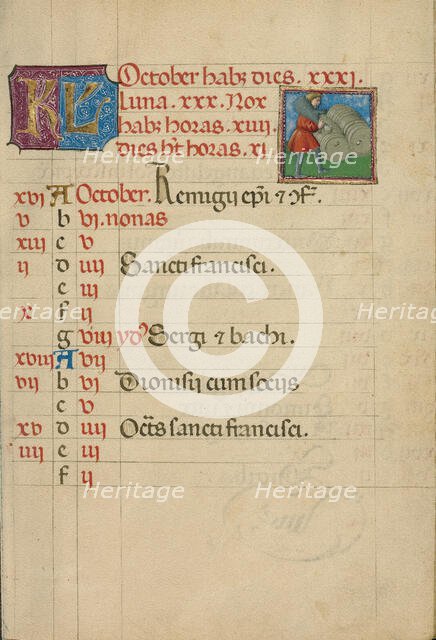 KL October habꝫ dies. xxxj.
Luna. xxx. Nox
habꝫ horas. xiij
dies ht horas. xj.
xvj A October. Remigij epi ⁊ 9f.
v b vj. nonas
xiij c v
ij d iiij Sancti francisci.
e iij
x f ij
g viij yd9 Sergi ⁊ bachi.
xviij A vij
vij b vj Dionisij cum socijs
c v
xv d iiij Octs sancti francisci.
iiij e iij
f ij
Heritage Heritage
Heritage Heritage Heritage
Heritage Heritage Heritage